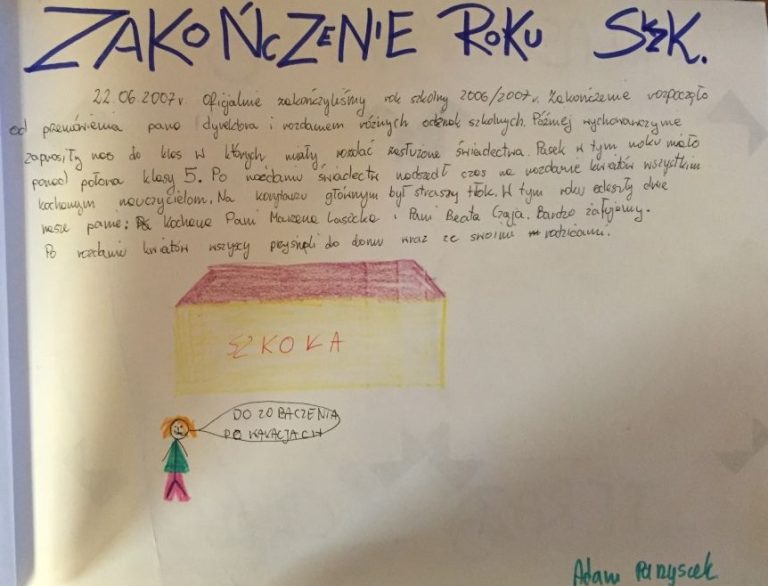 ZAKOŃCZENIE ROKU SZK.
22.06.2007r. Oficjalnie zakończyliśmy rok szkolny 2006/2007r. Zakończenie rozpoczęło
od przemówienia pana dyrektora i rozdaniem różnych odznak szkolnych. Później wychowawczynie
zaprosiły nas do klas w których miały rozdać zasłużone świadectwa. Pasek w tym roku miało
ponad połowa klasy 5. Po rozdaniu świadectw nadszedł czas na rozdanie kwiatów wszystkim
kochanym nauczycielom. Na korytarzu głównym był straszny tłok. W tym roku odeszły dwie
nasze panie: Kochana Pani Marzena Lasacka i Pani Beata Czaja. Bardzo żałujemy.
Po rozdaniu kwiatów wszyscy do domu wraz ze swoimi rodzicami.
SZKOŁA
DO ZOBACZENIA
PO WAKACJACH
Adam